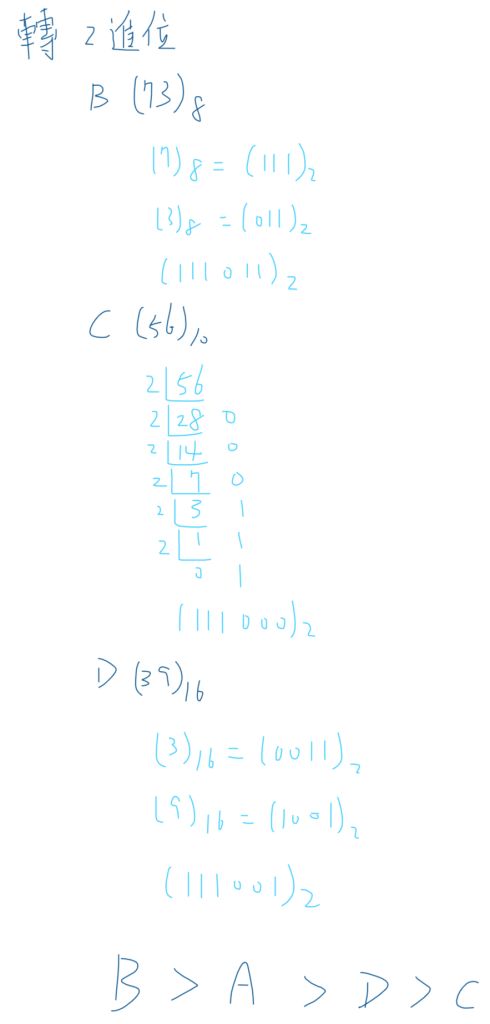 轉 2進位
B (73)₈
(7)₈ = (111)₂
(3)₈ = (011)₂
(111011)₂
C (56)₁₀
2 56
2 28 0
2 14 0
2 7 0
2 3 1
2 1 1
0 1
(111000)₂
D (39)₁₆
(3)₁₆ = (0011)₂
(9)₁₆ = (1001)₂
(111001)₂
B > A > D > C